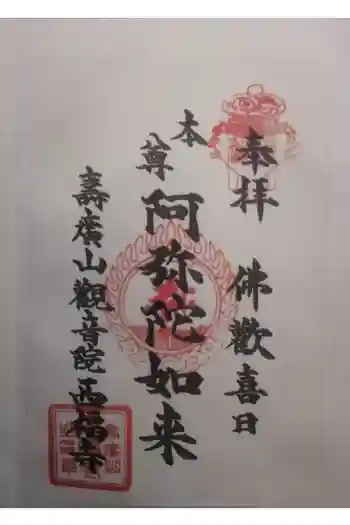 奉拝　佛歡喜日
本尊
阿弥陀如来
壽廣山觀音院西福寺